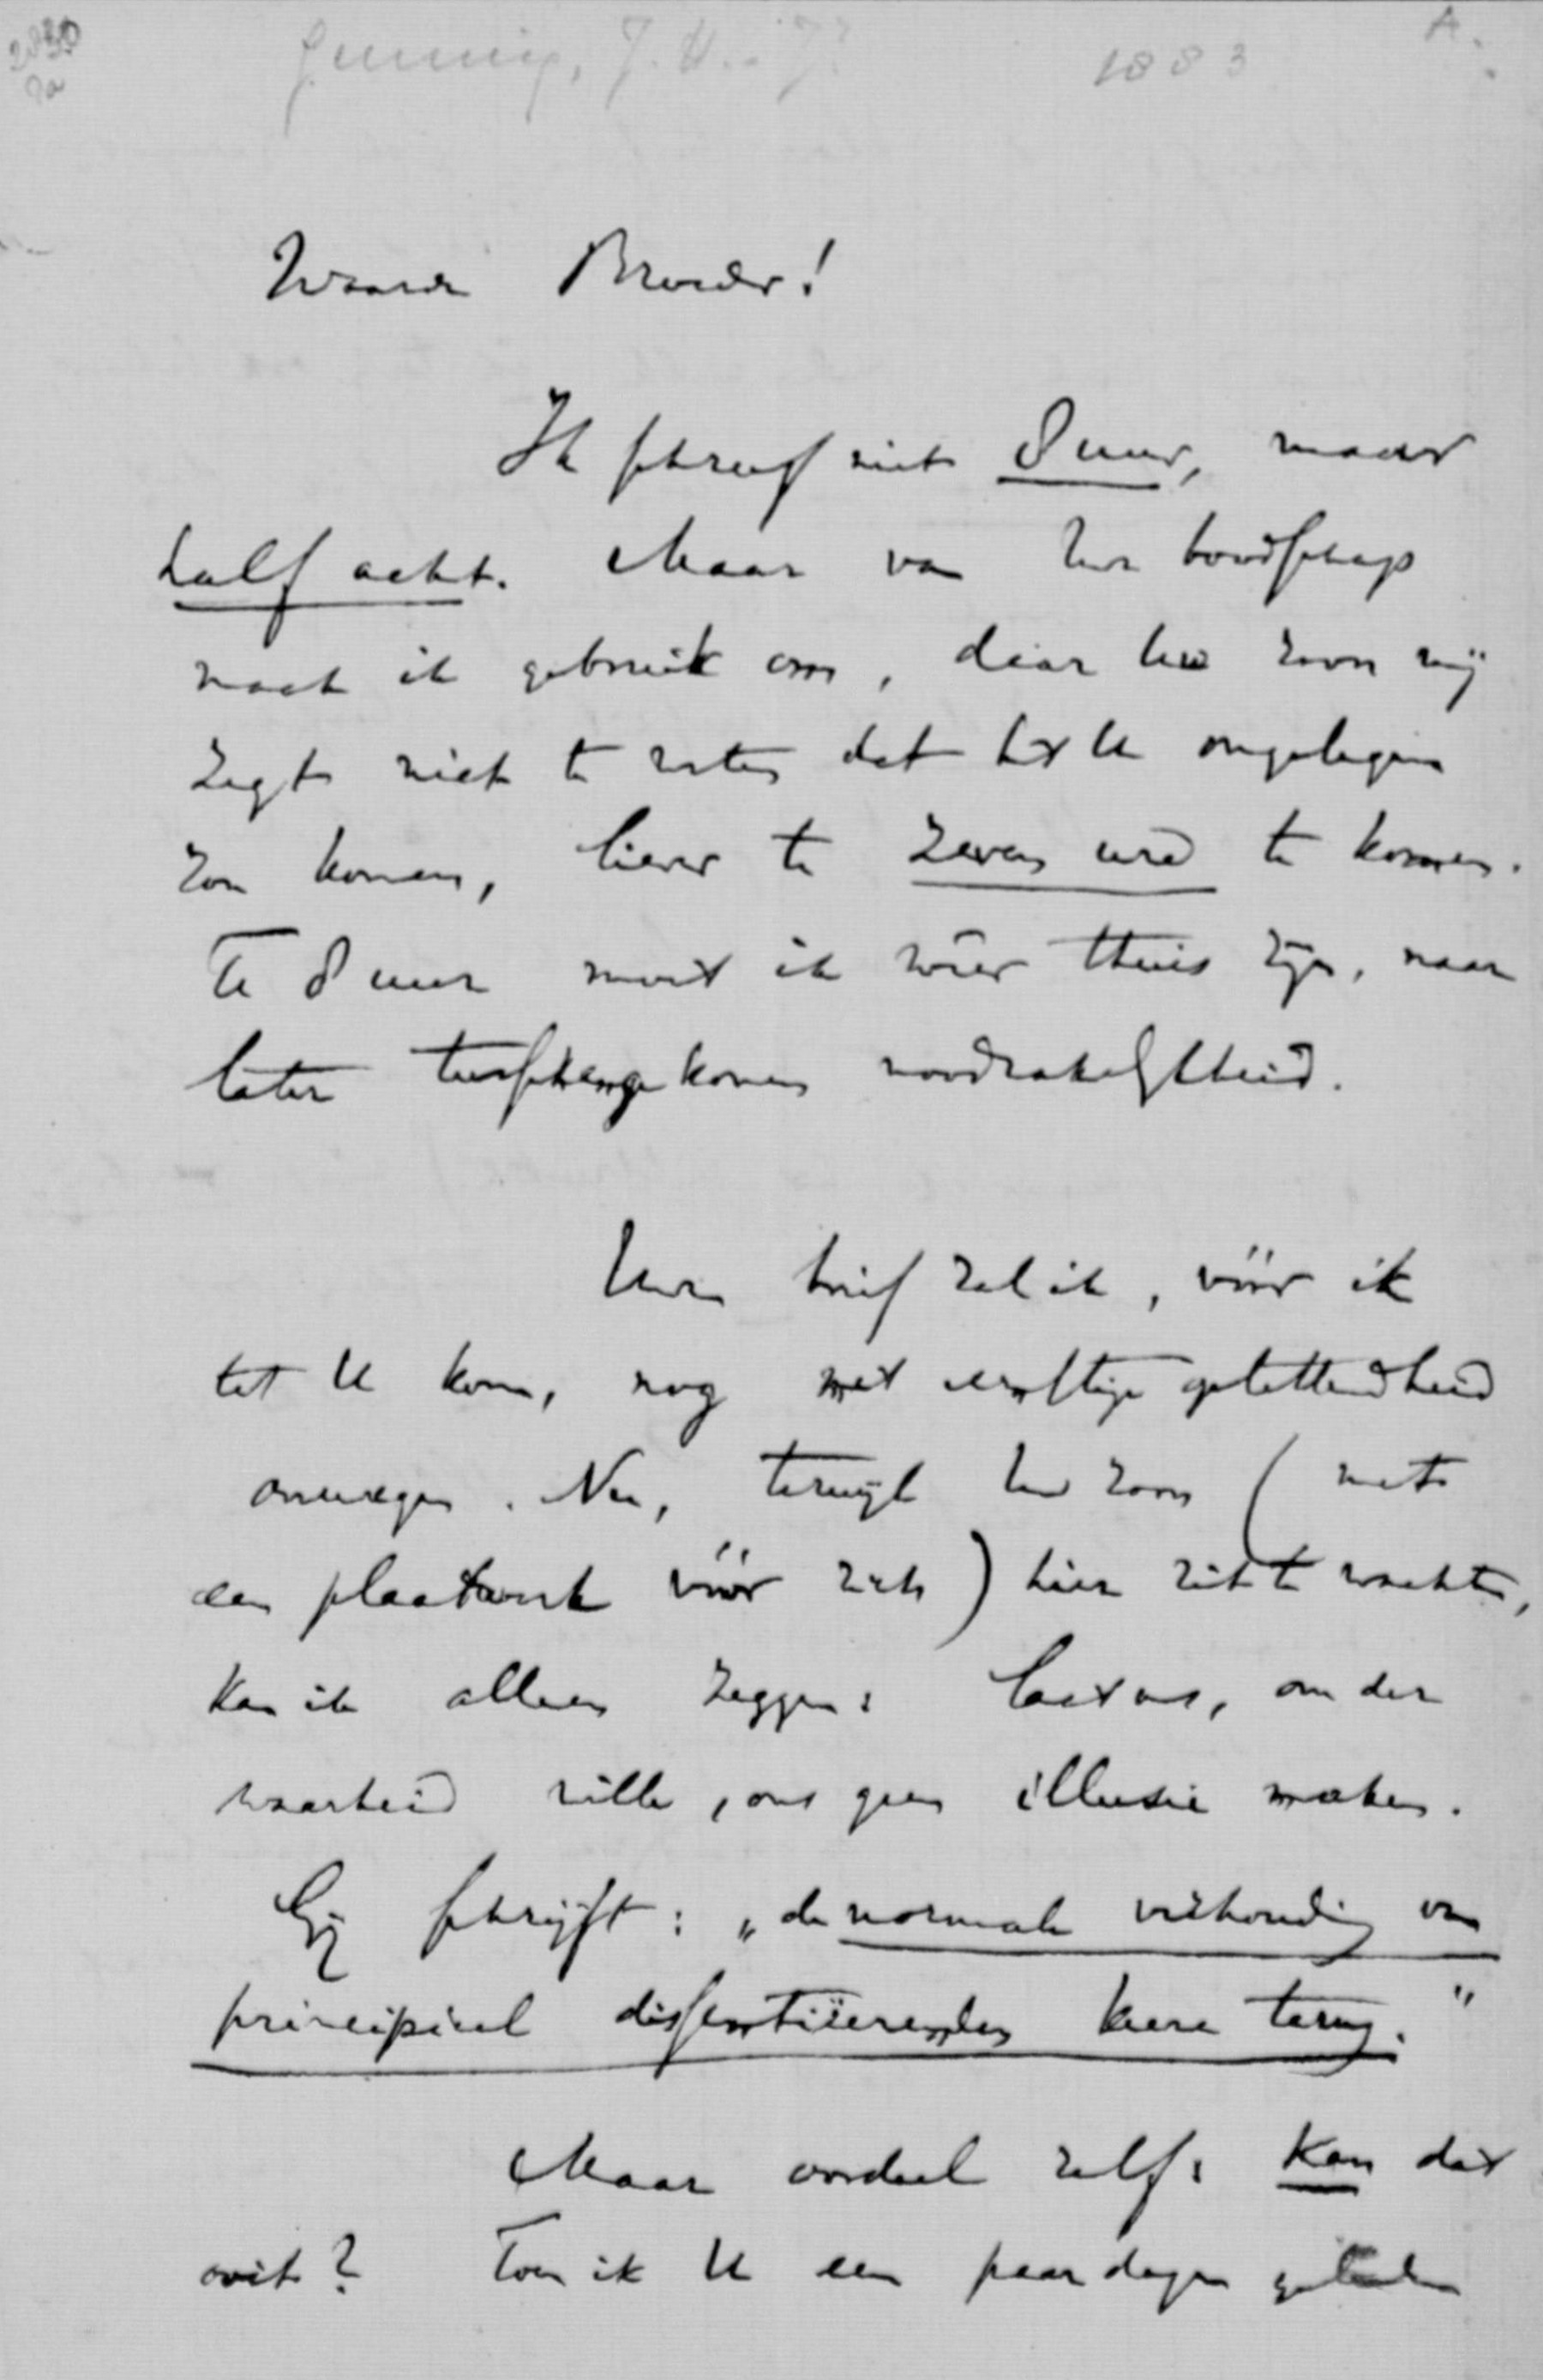 Gunning, J. H. Jr 1883 A.
Waarde Broeder!
Ik schreef niet 8 uur, maar
half acht. Maar van Uw boodschap
maak ik gebruik om, daar Uw zoon mij
zegt niet te weten dat het U ongelegen
zou komen, liever te zeven ure te komen.
Te 8 uur moet ik weer thuis zijn, naar
later tusschengekomen noodzakelijkheid.
Uwen brief zal ik, vóór ik
tot U kom, nog met ernstige oplettendheid
overwegen. Nu, terwijl Uw zoon (met
een plaatwerk vóór zich) hier zit te wachten,
kan ik alleen zeggen: laat ons, om der
waarheid wille, ons geen illusie maken.
Gij schrijft: „de normale verhouding van
principieel dissentiëerenden keere terug."
Maar oordeel zelf: kan dat
ooit? Toen ik U een paar dagen geleden